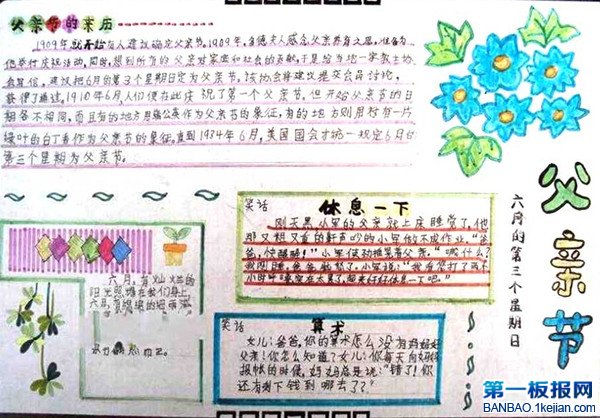 父亲节的来历
1909年就开始有人建议确定父亲节。1909年,多德夫人感念父亲养育之恩,准备为
他举行庆祝活动,同时,想到所有的父亲对家庭和社会的贡献,于是给当地一家教士协
会写信,建议把6月的第3个星期日定为父亲节。该协会将建议提交会员讨论,
获便了通过。1910年6月,人们便在此庆祝了第一个父亲节。但开始父亲节的日
期各不相同,而且有的地方用蒲公英作为父亲节的象征,有的地方则用衬有一片
绿叶的白丁香作为父亲节的象征。直到1934年6月,美国国会才统一规定6月的
第三个星期为父亲节。
父亲节
六月的第三个星期日
笑话
休息一下
刚天黑小军的父亲就上床睡觉了,他
那又粗又重的鼾声吵的小军做不成作业。“爸
爸,快醒醒!”小军使劲推着父亲。“做什么?
小军说:
笑话
算术
女儿:爸爸,你的算术怎么没有妈妈好
父亲:你怎么知道?女儿:你每天向妈妈
报帐的时候,妈妈总是说:“错了!你
还有剩下钱到哪去了?”
六月,有灿烂的
阳光照耀在我们身上,
六月,有
第一板报网
BANBAO.1kejian.com